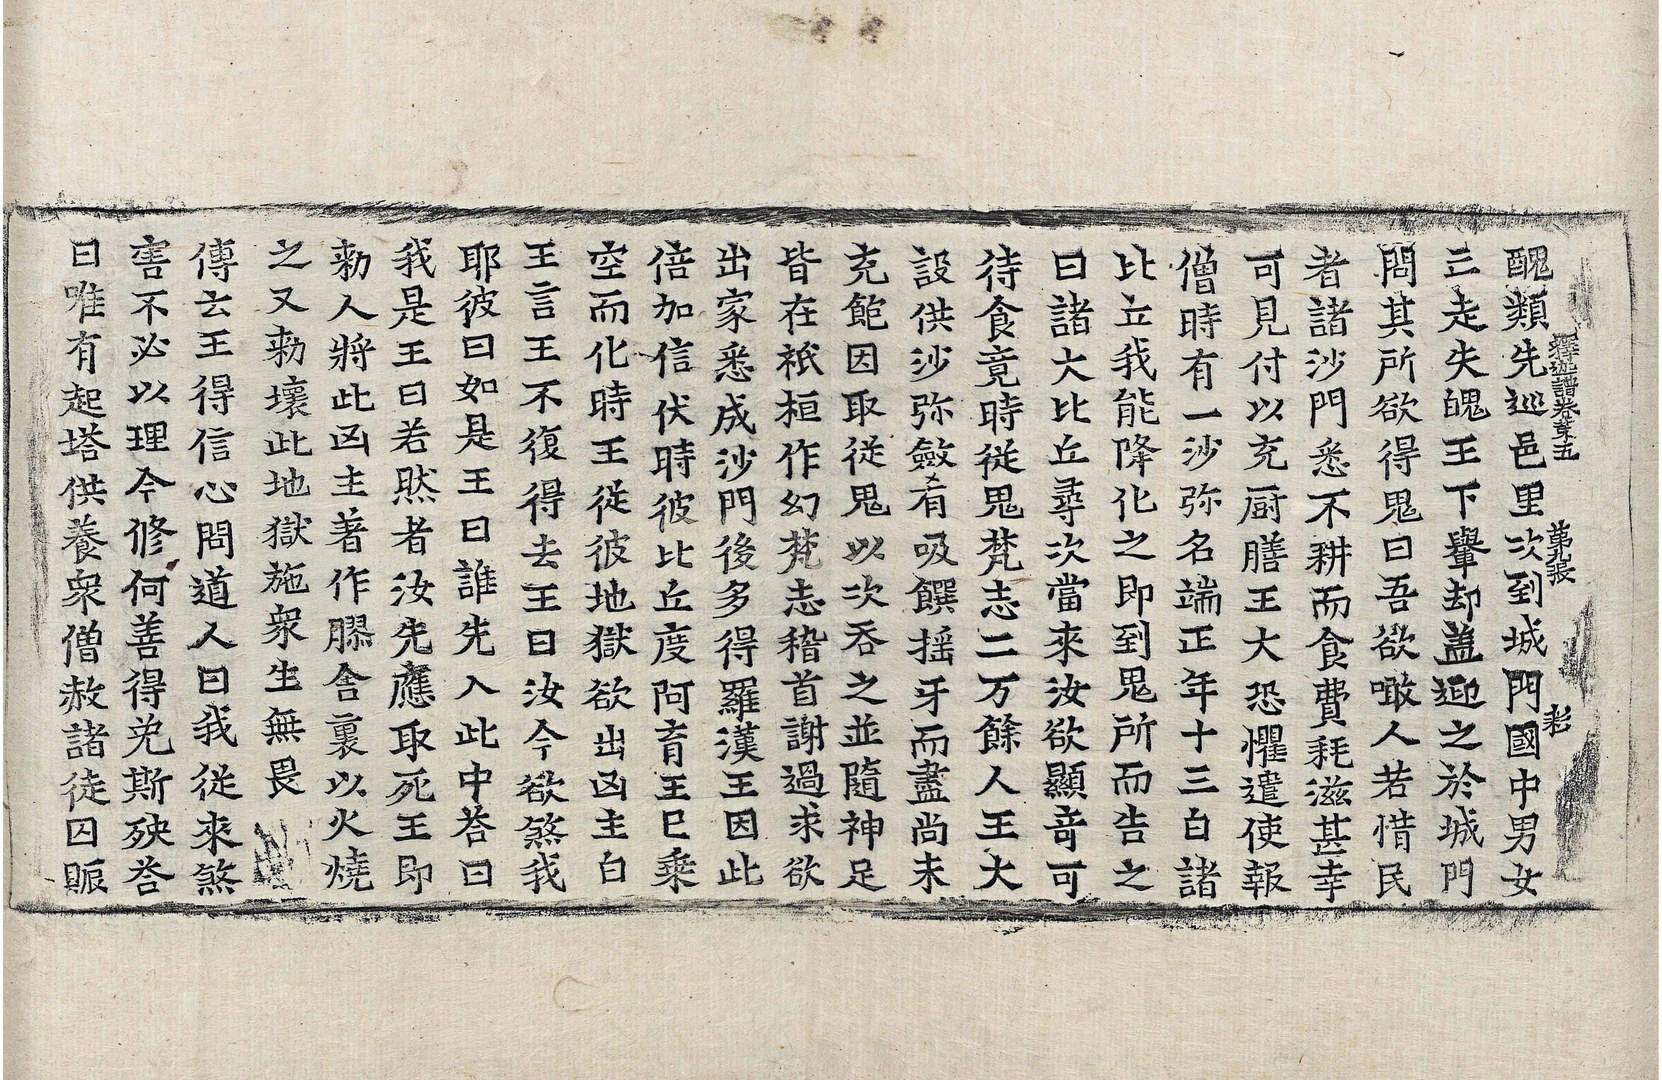 釋迦譜卷第五 第九張 彩
醜類先巡邑里次到城門國中男女
三走失魄王下輦却盖迎之於城門
問其所欲得鬼曰吾欲噉人若惜民
者諸沙門悉不耕而食費耗滋甚幸
可見付以充厨膳王大恐懼遣使報
僧時有一沙弥名端正年十三白諸
比丘我能降化之即到鬼所而告之
曰諸大比丘尋次當來汝欲顯竒可
待食竟時從鬼梵志二万餘人王大
設供沙弥斂肴吸饌揺牙而盡尚未
充飽因取從鬼以次吞之並隨神足
皆在祇桓作幻梵志稽首謝過求欲
出家悉成沙門後多得羅漢王因此
倍加信伏時彼比丘度阿育王已乘
空而化時王從彼地獄欲出凶主白
王言王不復得去王曰汝今欲煞我
耶彼曰如是王曰誰先入此中荅曰
我是王曰若然者汝先應取死王即
勑人將此凶主著作膠舍裏以火燒
之又勑壞此地獄施衆生無畏
傳云王得信心問道人曰我從來煞
害不必以理今修何善得免斯殃荅
曰唯有起塔供養衆僧赦諸徒囚賑